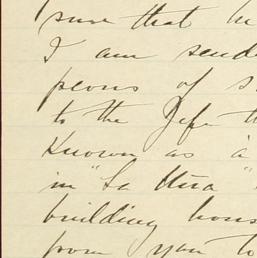 sure that he
I am send
peons of s
to the Jefe th
Known as a
in "La Mina"
building hous
from you to